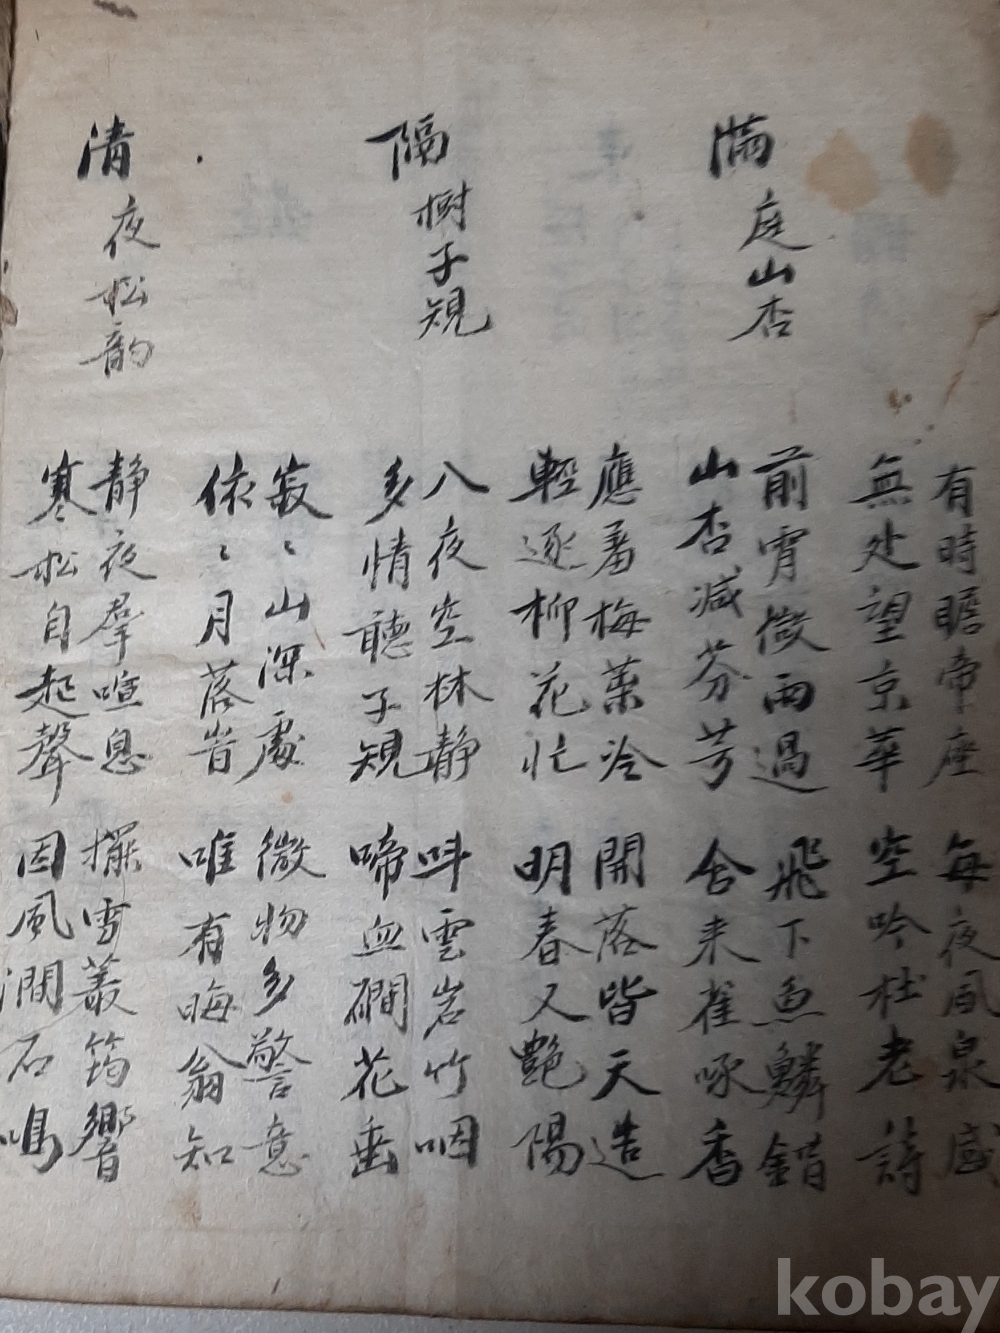 有時瞻帝座 每夜風泉感
無处望京華 空吟杜老詩
滿庭山杏
前宵微雨過 飛下魚鱗錯
山杏减芬芳 含来雀啄香
應羞梅蘂冷 開落皆天造
輕逐柳花忙 明春又艶陽
隔樹子規
八夜空林静 呌雲岩竹咽
多情聽子規 啼血磵花垂
寂〻山深處 微物多警意
依〻月落旹 唯有晦翁知
清夜松韵
静夜羣喧息 擺雪叢筠響
寒松自起聲 因風澗石鳴
kobay